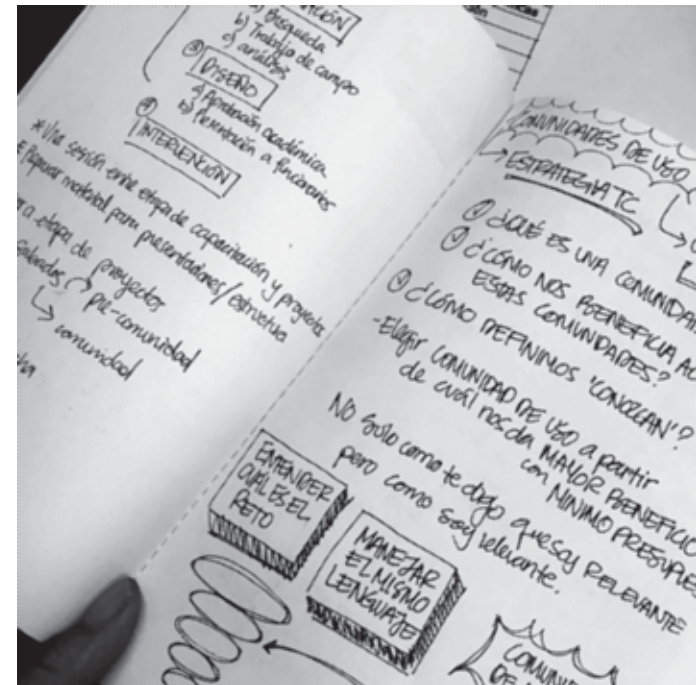 a) Búsqueda
b) Trabajo de campo
c) análisis
③ DISEÑO
a) Aprobación académica
b) Presentación a funcionarios
④
INTERVENCIÓN
* Una sesión entre etapa de capacitación y proyecto
material para presentaciones / estructura
a etapa de proyectos
pre-comunidad
↳ comunidad
COMUNIDADES DE USO
→ ESTRATEGIA TC
¿QUÉ ES UNA COMUNIDAD
¿CÓMO NOS BENEFICIA
ESTAS COMUNIDADES?
¿CÓMO DEFINIMOS "CONOZCAN"?
- Elegir COMUNIDAD DE USO a partir
de cuál nos da MAYOR BENEFICIO
con MINIMO
NO solo como te digo que soy RELEVANTE
pero como soy relevante.
ENTENDER
CUÁL ES EL
RETO
MANEJAR
EL MISMO
LENGUAJE